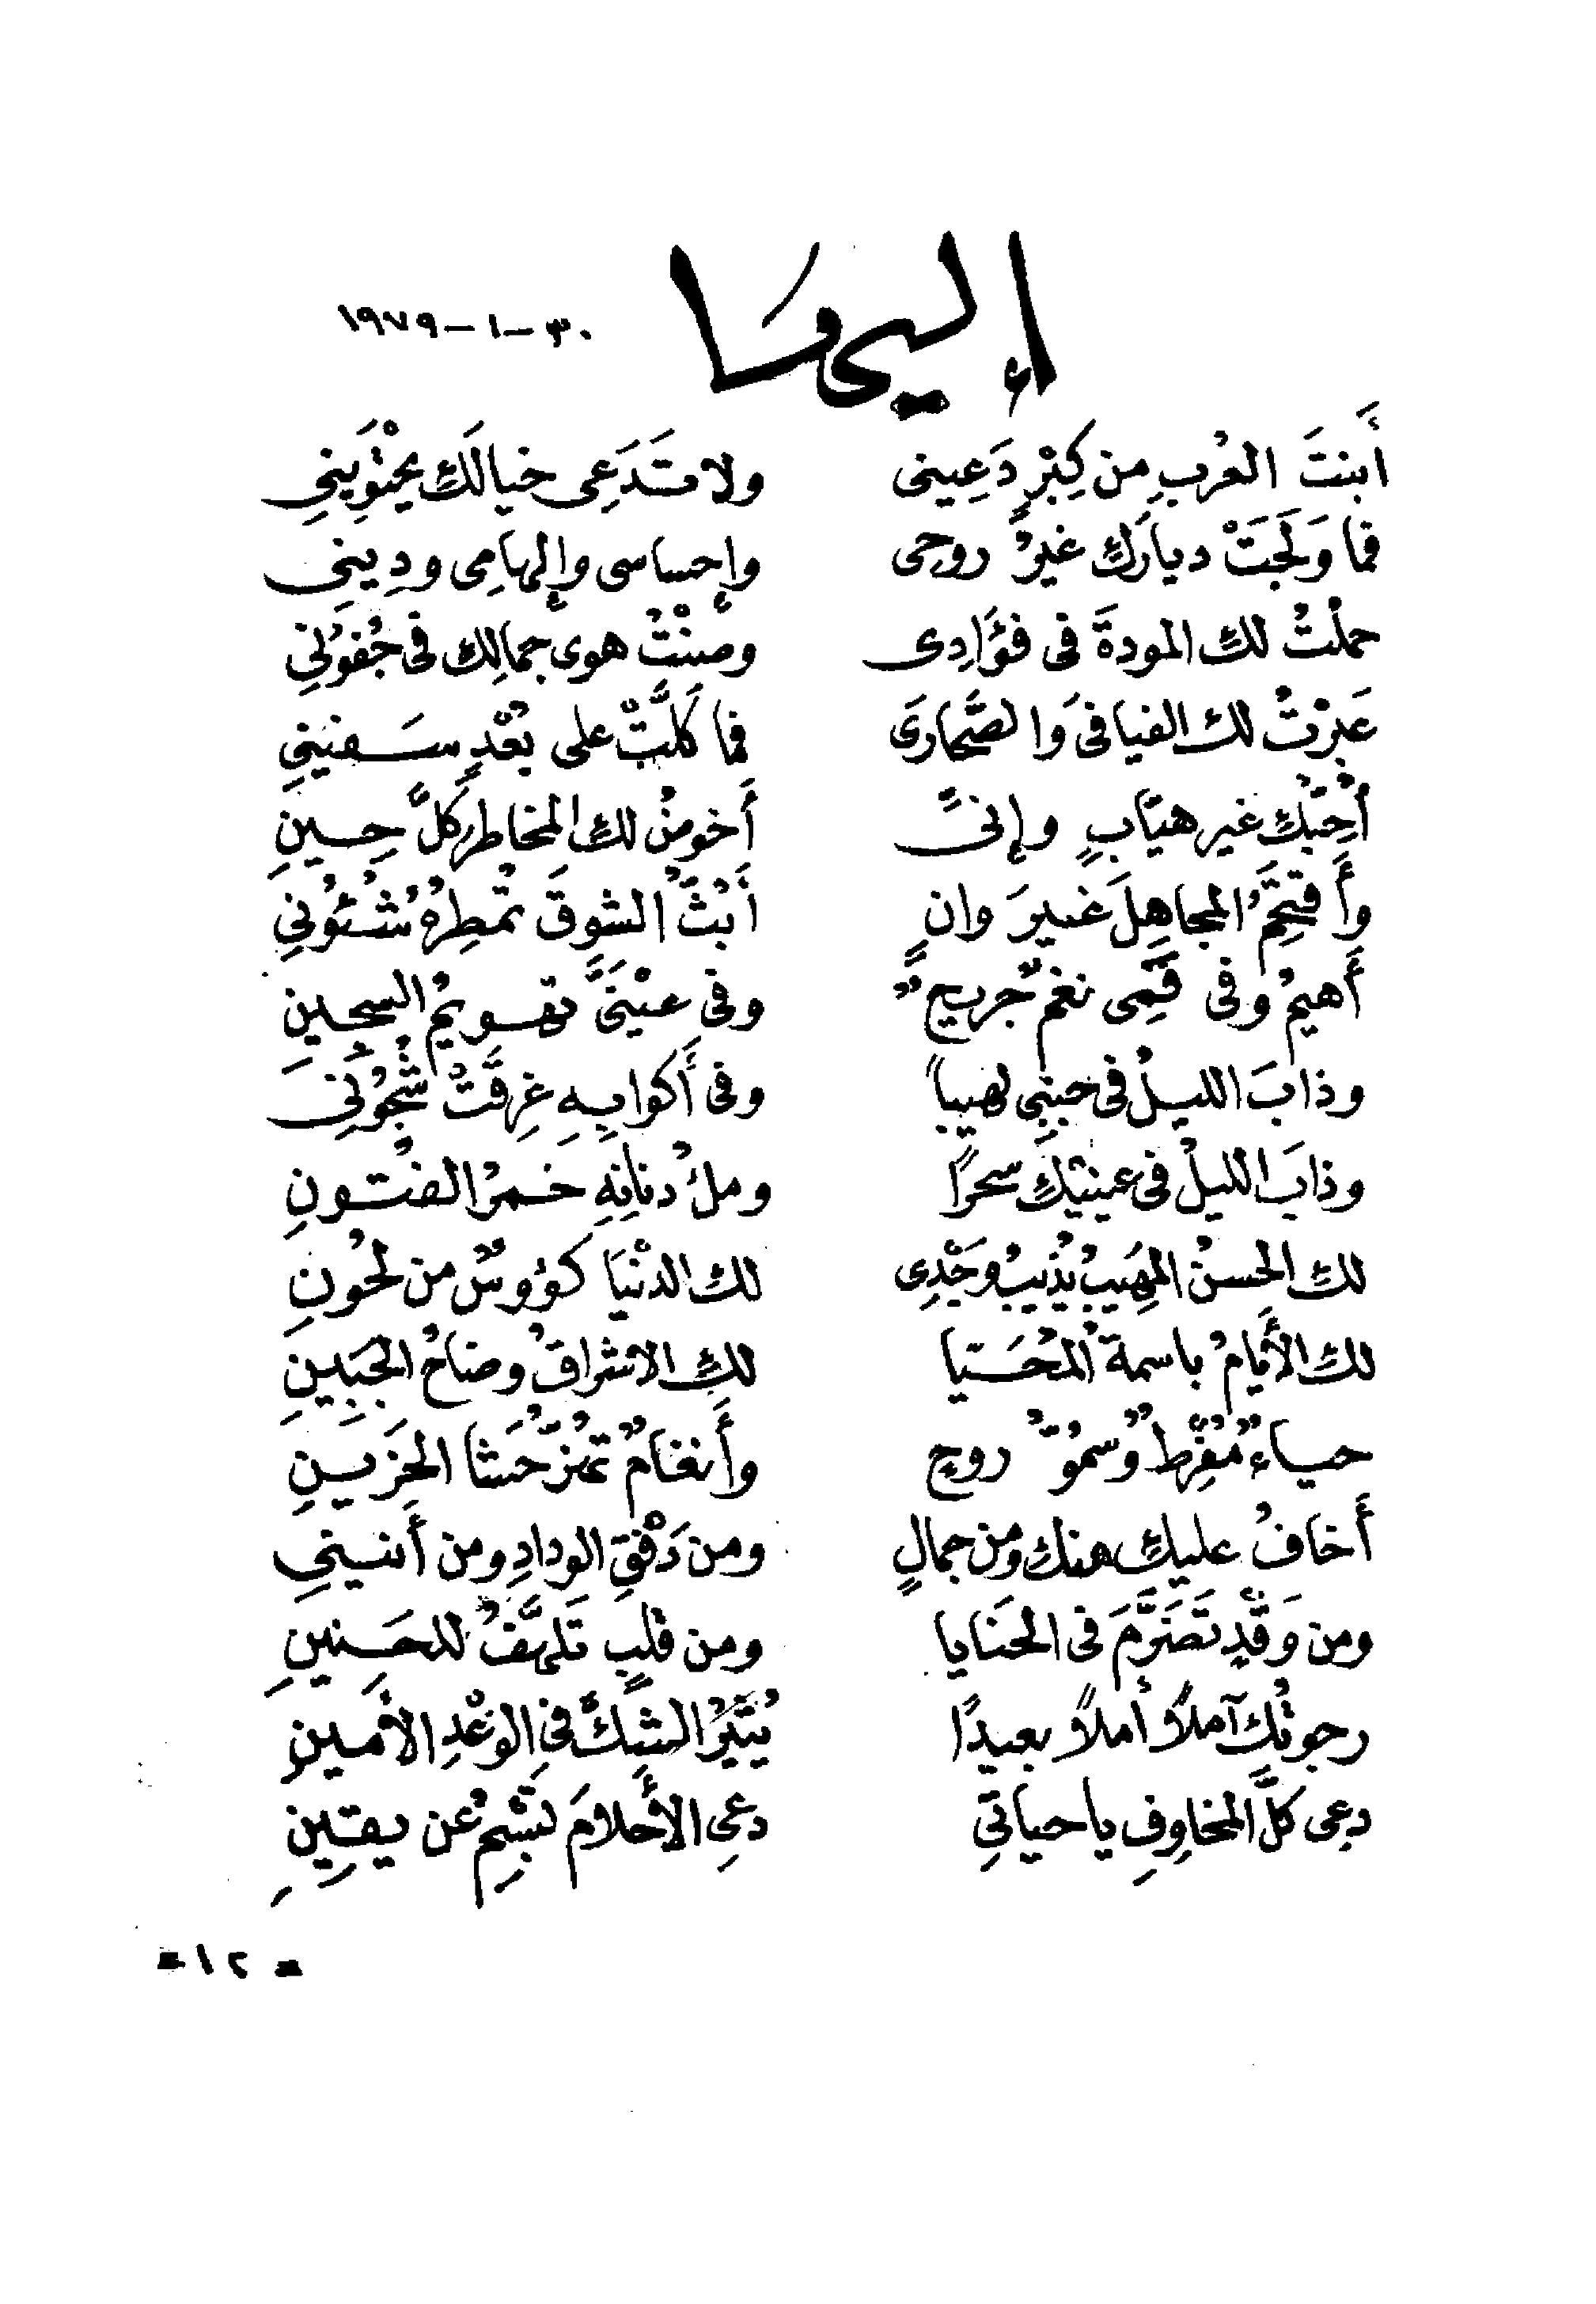 إليها
٣٠-١-١٩٧٩
أبنتَ العُربِ من كِبْرٍ دَعِينى ولا تَدَعِى خيالَكِ يحْتَوِينِى
فما وَلَجَتْ ديارَكِ غيرُ روحى وإحساسى وإلهامِى ودِينِى
حملْتُ لكِ المودةَ فى فؤَادِى وصنْتُ هوى جمالِك فى جُفوُنِى
عَبرْتُ لك الفيافىَ والصَّحارىَ فما كَلَّتْ على بُعْدٍ سَفينِى
أُحِبّكِ غير هيّابٍ وإنىِّ أخوضُ لكِ المخاطرَ كلَّ حِينِ
وأَقتحِمُ المجاهِلَ غيرَ وانٍ أَبُثُّ الشوقَ تُمطِرُهُ شُئُونِى
أَهيمُ وفى فَمِى نغمٌ جريحٌ وفى عيْنَىَّ تهويمُ السجينِ
وذابَ الليلُ فى جنبِى لهيباً وفى أَكوابِهِ غرِقَتْ شُجُونِى
وذابَ الليلُ فى عينيْكِ سحرًا وملْءُ دنانِهِ خمرُ الفتُونِ
لكِ الحسنُ المهِيبُ يُذيبُ وَجْدِى لك الدنْيَا كؤوسٌ من لحُونِ
لك الأَيامُ باسمةُ المُحَيا لكِ الاشراقُ وضاحُ الجَبِينِ
حياءٌ مُفْرِطٌ وسموُّ روحٍ وأَنغامٌ تهُزّ حَشا الحَزينِ
أَخافُ عليكِ منك ومن جمالٍ ومن دَفْقِ الودادِ ومن أَنينِى
ومن وَقْدٍ تَضَرَّمَ فى الحنَايا ومن قلبٍ تَلهَّفُ للحَنِينِ
رجوتُكِ آملاً أملاً بعيدًا يُثيرُ الشكَّ فى الوعْدِ الأمينِ
دعى كلَّ المخاوِفِ يا حياتِى دعِى الأَحلامَ تَبْسِمُ عن يقينِ
= ١٢ =